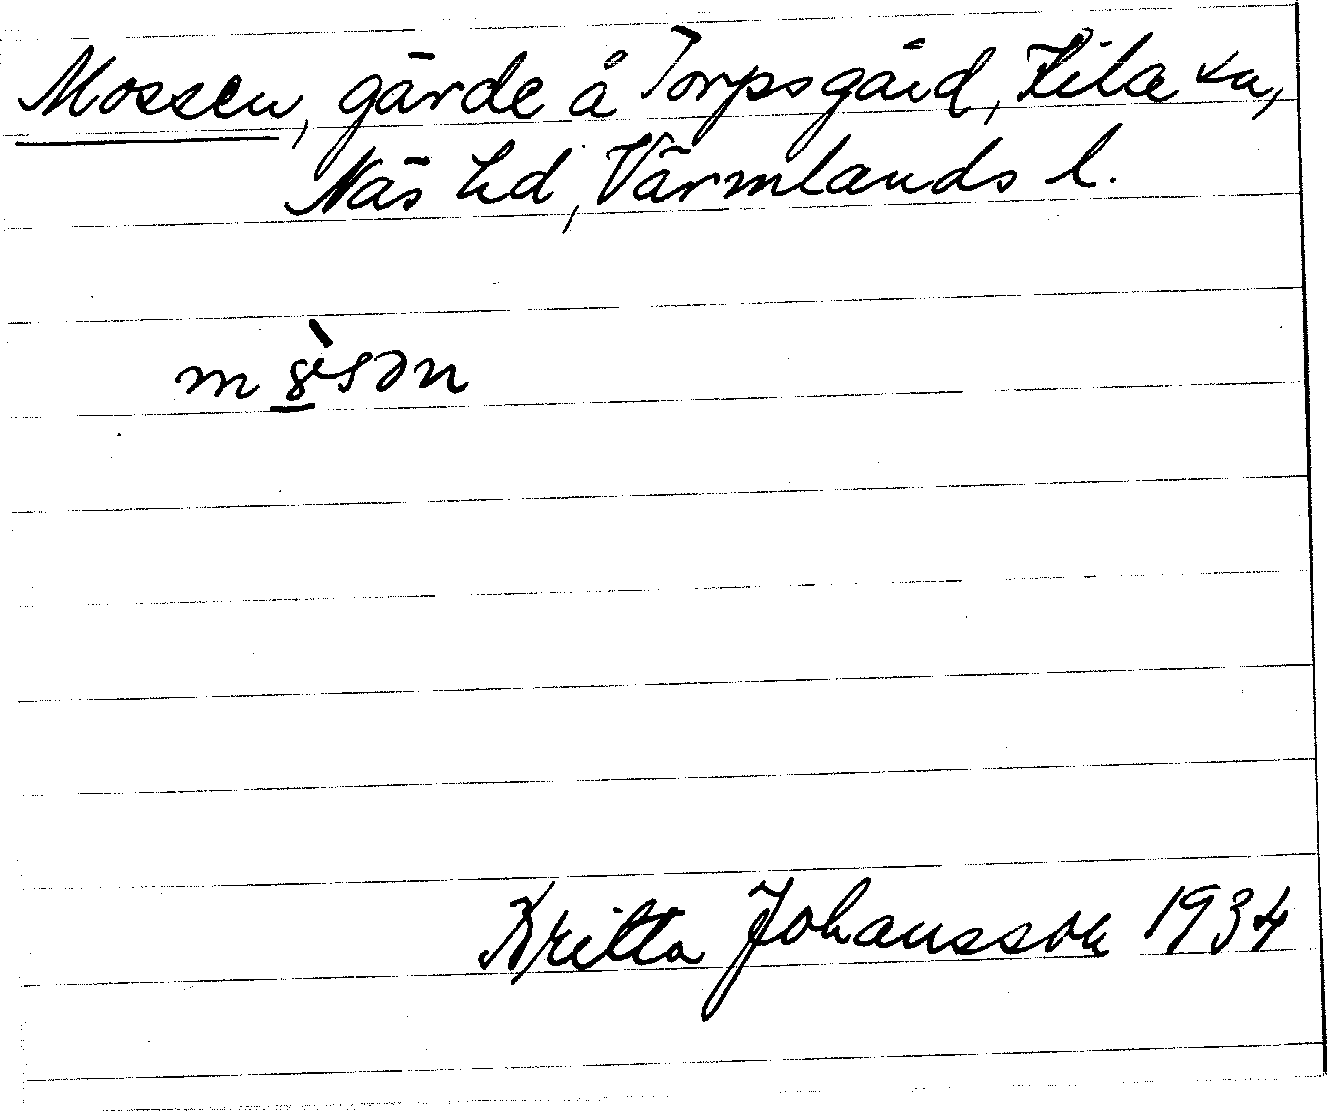 Mossen, gärde å Torpsgård, Kila sn,
Näs hd, Värmlands l.
Britta Johansson 1934